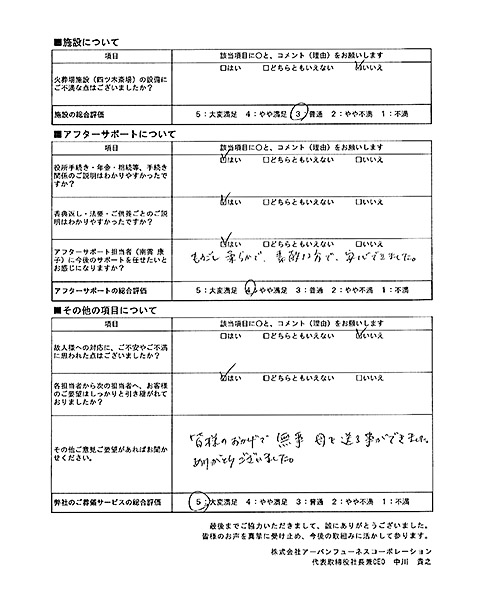 ■施設について
項目 該当項目に○と、コメント（理由）をお願いします
火葬場施設（四ツ木斎場）の設備に □はい □どちらともいえない ☑いいえ
ご不満な点はございましたか？
施設の総合評価 5：大変満足 4：やや満足 3：普通 2：やや不満 1：不満
■アフターサポートについて
項目 該当項目に○と、コメント（理由）をお願いします
役所手続き・年金・相続等、手続き ☑はい □どちらともいえない □いいえ
関係のご説明はわかりやすかったで
すか？
香典返し・法要・ご供養ごとのご説 ☑はい □どちらともいえない □いいえ
明はわかりやすかったですか？
☑はい □どちらともいえない □いいえ
アフターサポート担当者（南雲 康
子）に今後のサポートを任せたいと
お感じになりますか？
で、安心できました。
アフターサポートの総合評価 5：大変満足 4：やや満足 3：普通 2：やや不満 1：不満
■その他の項目について
項目 該当項目に○と、コメント（理由）をお願いします
故人様への対応に、ご不安やご不満 □はい □どちらともいえない ☑いいえ
に思われた点はございましたか？
各担当者から次の担当者へ、お客様 ☑はい □どちらともいえない □いいえ
のご要望はしっかりと引き継がれて
おりましたか？
その他ご意見ご要望があればお聞
かせください。
皆様のおかげで無事 母を送る事ができました。
ありがとうございました。
弊社のご葬儀サービスの総合評価 5：大変満足 4：やや満足 3：普通 2：やや不満 1：不満
最後までご協力いただきまして、誠にありがとうございました。
皆様のお声を真摯に受け止め、今後の取組みに活かして参ります。
株式会社アーバンフューネスコーポレーション
代表取締役社長兼CEO 中川 貴之